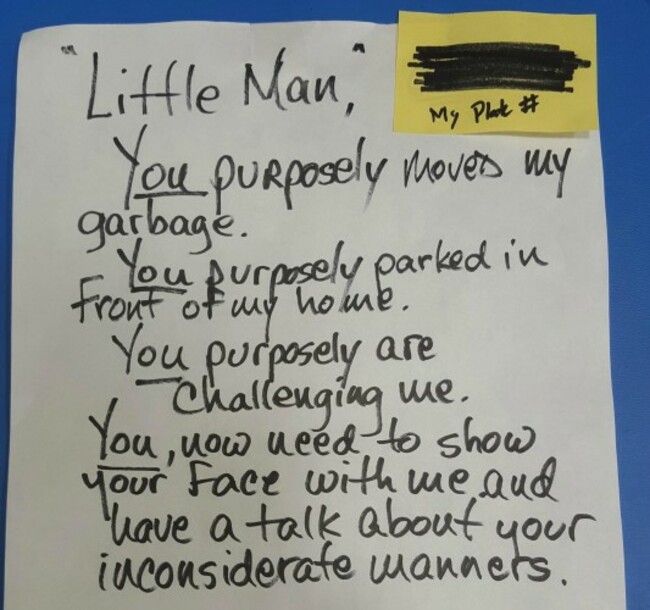 "Little Man,"
My Plate #
You purposely moved my
garbage.
You purposely parked in
front of my home.
You purposely are
challenging me.
You, now need to show
your face with me and
have a talk about your
inconsiderate manners.